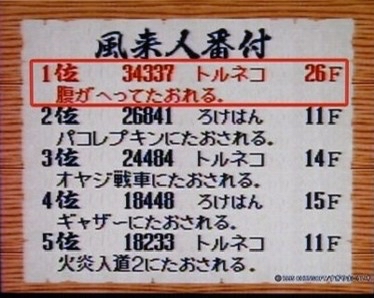 風来人番付
1位 34337 トルネコ 26F
腹がへってたおれる。
2位 26841 ろけはん 11F
パコレプキンにたおされる。
3位 24484 トルネコ 14F
オヤジ戦車にたおされる。
4位 18448 ろけはん 15F
ギャザーにたおされる。
5位 18233 トルネコ 11F
火炎入道2にたおされる。